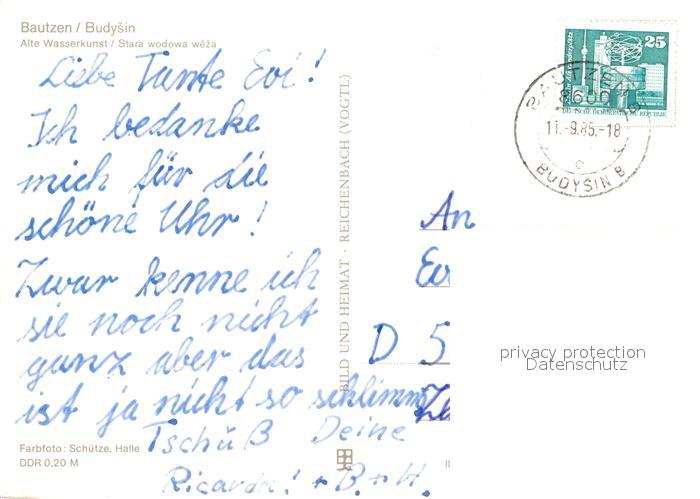 Bautzen / Budyšin
Alte Wasserkunst / Stara wodowa wěža
Liebe Tante Evi!
Ich bedanke
mich für die
schöne Uhr!
Zwar kenne ich
sie noch nicht
ganz aber das
ist ja nicht so schlimm
Tschüß Deine
Ricarda! + B. + H.
Farbfoto: Schütze, Halle
DDR 0,20 M
BILD UND HEIMAT · REICHENBACH (VOGTL)
25
BAUTZEN
8600
11.-9.85.-18
c
BUDYŠIN 8
An
Ev
D 5
privacy protection
Datenschutz